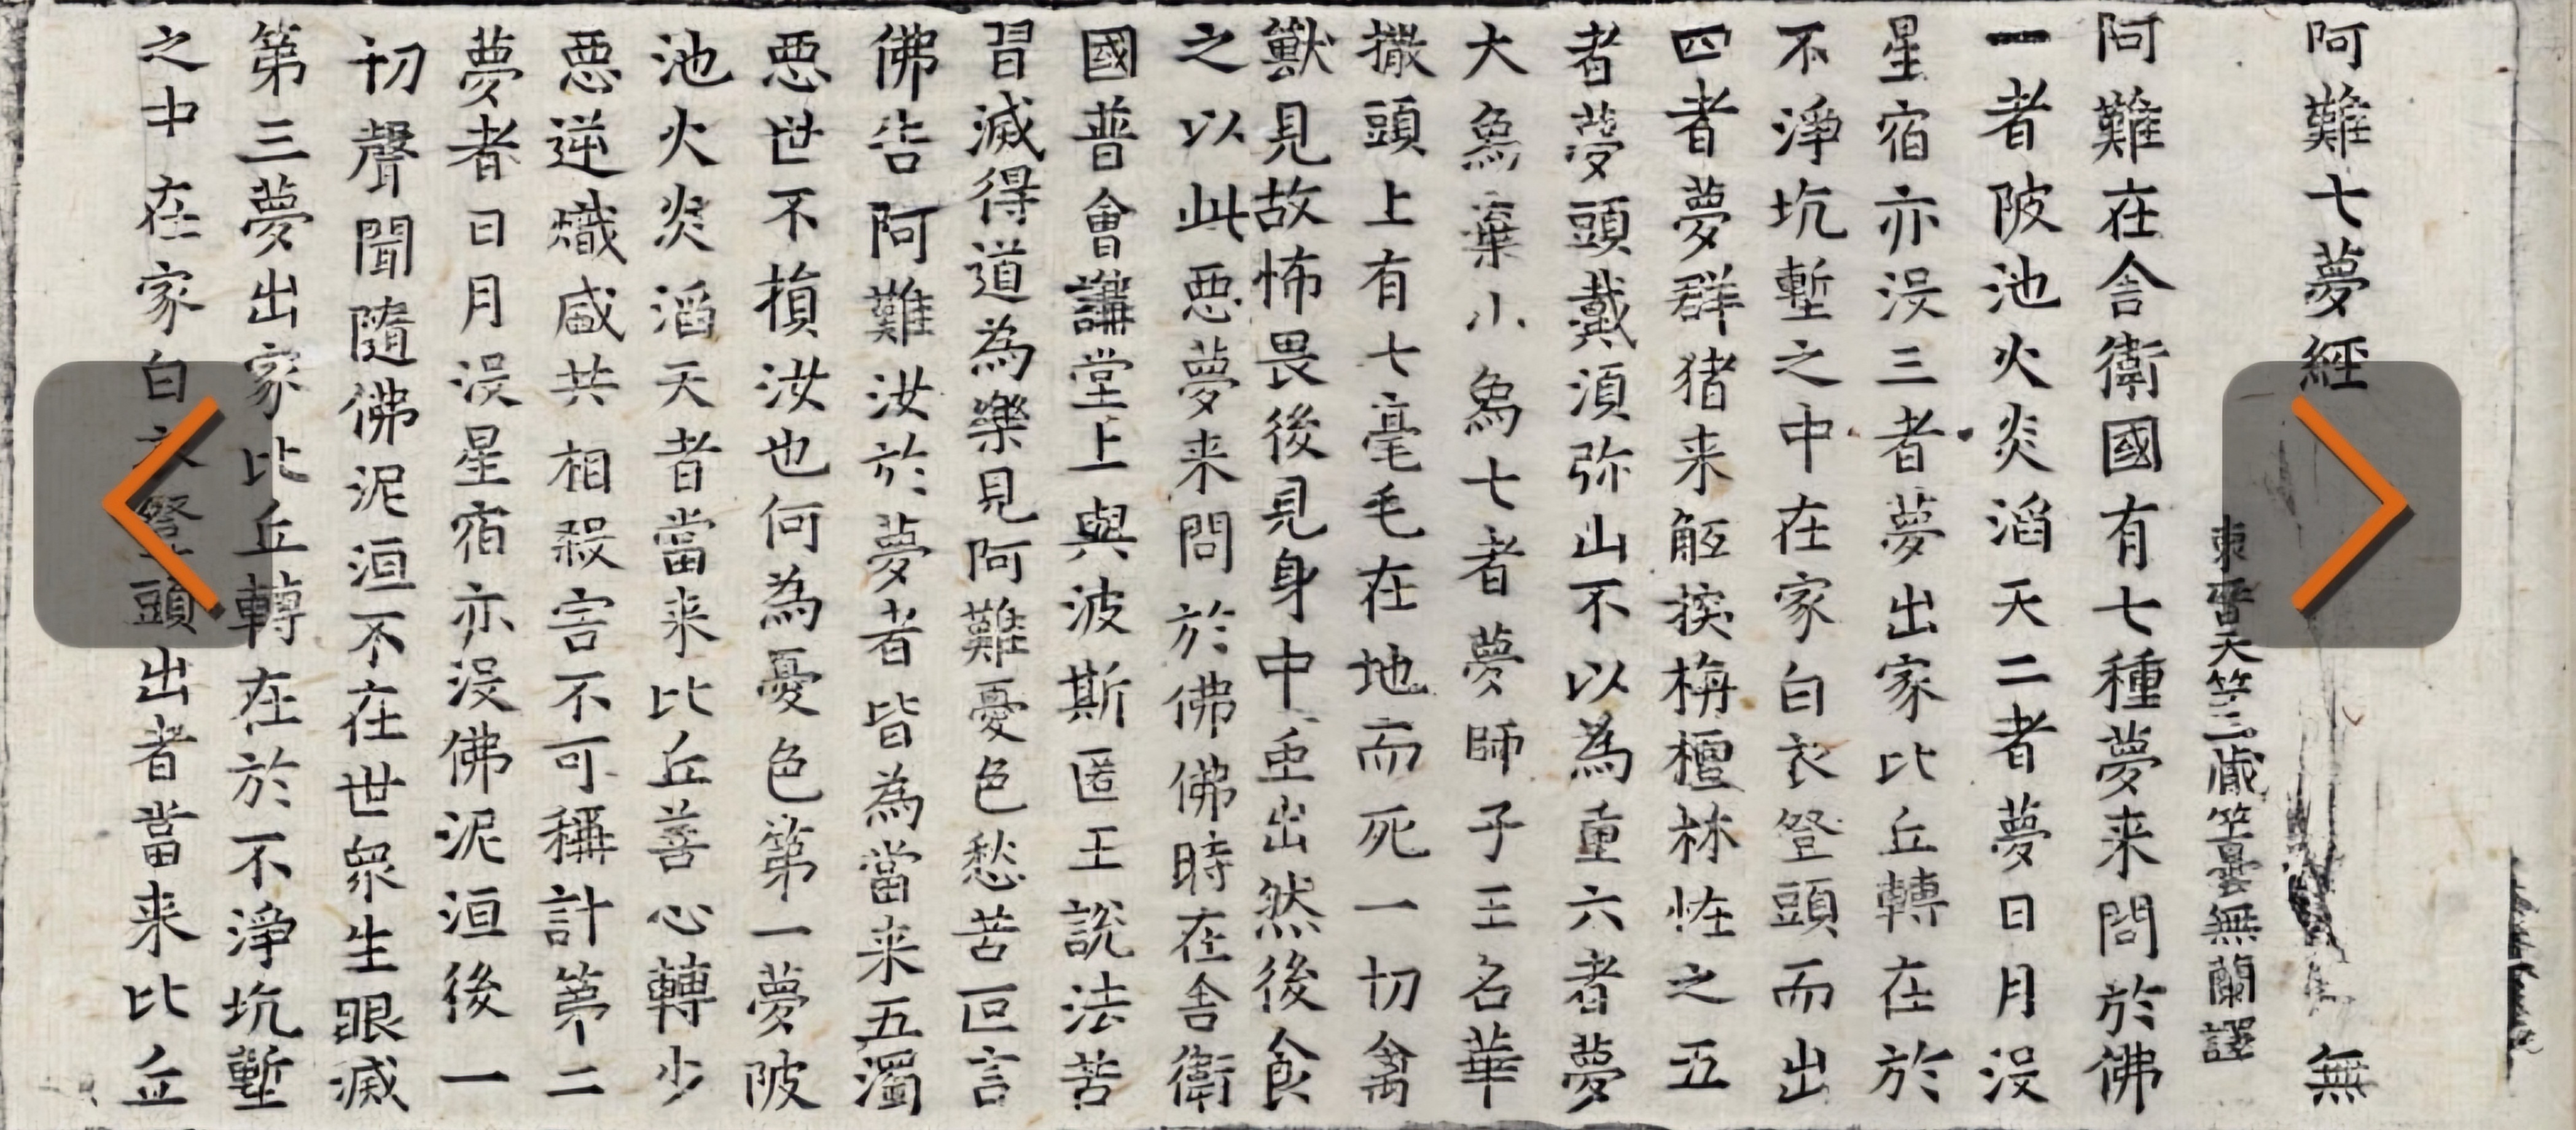 阿難七夢經 無
東晉天竺三藏竺曇無蘭譯
阿難在舍衛國有七種夢来問於佛
一者陂池火炎滔天二者夢日月没
星宿亦没三者夢出家比丘轉在於
不淨坑塹之中在家白衣登頭而出
四者夢群猪来觝揬栴檀林怪之五
者夢頭戴須弥山不以為重六者夢
大象棄小象七者夢師子王名華
撒頭上有七毫毛在地而死一切禽
獸見故怖畏後見身中虫出然後食
之以此惡夢来問於佛佛時在舍衛
國普會講堂上與波斯匿王説法苦
習滅得道為樂見阿難憂色愁苦叵言
佛告阿難汝於夢者皆為當来五濁
惡世不損汝也何為憂色第一夢陂
池火炎滔天者當来比丘善心轉少
惡逆熾盛共相殺害不可稱計第二
夢者日月没星宿亦没佛泥洹後一
切聲聞隨佛泥洹不在世衆生眼滅
第三夢出家比丘轉在於不淨坑塹
之中在家白衣登頭出者當来比丘